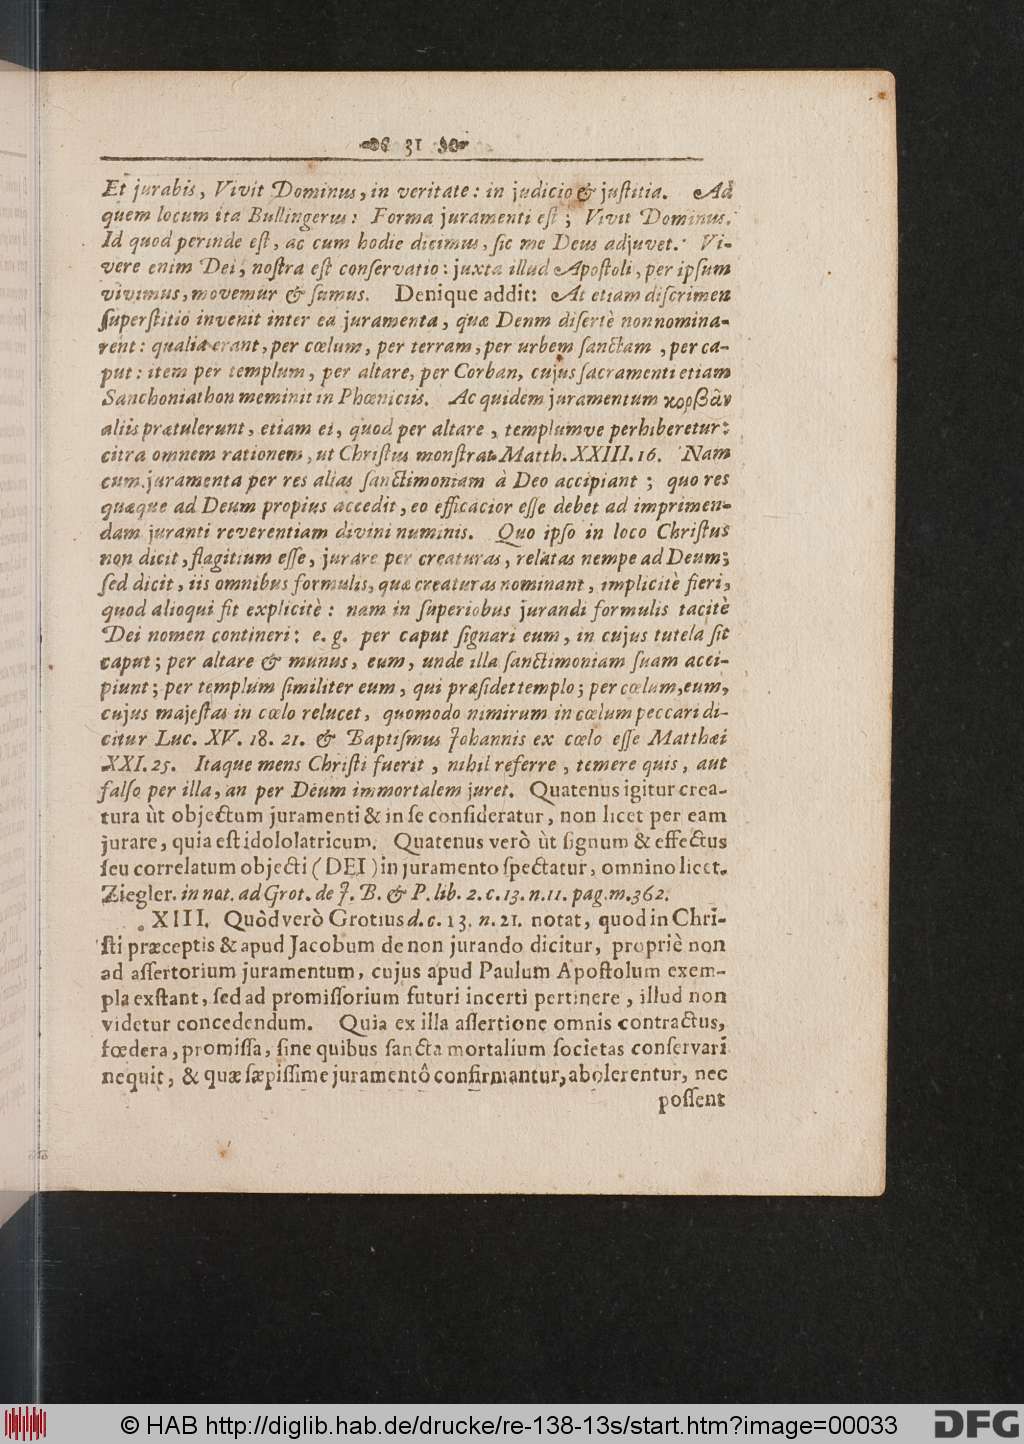 31
Et jurabis, Vivit Dominus, in veritate: in judicio & juſtitia. Ad
quem locum ita Bullingerus: Forma juramenti eſt; Vivit Dominus.
Id quod perinde eſt, ac cum hodie dicimus, ſic me Deus adjuvet. Vi-
vere enim Dei, noſtra eſt conſervatio: juxta illud Apoſtoli, per ipſum
vivimus, movemur & ſumus. Denique addit: At etiam diſcrimen
ſuperſtitio invenit inter ea juramenta, quæ Deum diſertè nonnomina-
rent: qualia erant, per cœlum, per terram, per urbem ſanctam, per ca-
put: item per templum, per altare, per Corban, cujus ſacramenti etiam
Sanchoniathon meminit in Phœniciis. Ac quidem juramentum κορβᾶν
aliis prætulerunt, etiam ei, quod per altare, templumve perhiberetur:
citra omnem rationem, ut Chriſtus monſtrat Matth. XXIII. 16. Nam
cum juramenta per res alias ſanctimoniam à Deo accipiant; quo res
quæque ad Deum propius accedit, eo efficacior eſſe debet ad imprimen-
dam juranti reverentiam divini numinis. Quo ipſo in loco Chriſtus
non dicit, flagitium eſſe, jurare per creaturas, relatas nempe ad Deum;
ſed dicit, iis omnibus formulis, quæ creaturas nominant, implicitè fieri,
quod alioqui fit explicitè: nam in ſuperiobus jurandi formulis tacitè
Dei nomen contineri: e. g. per caput ſignari eum, in cujus tutela ſit
caput; per altare & munus, eum, unde illa ſanctimoniam ſuam acci-
piunt; per templum ſimiliter eum, qui præſidet templo; per cœlum, eum,
cujus majeſtas in cœlo relucet, quomodo nimirum in cœlum peccari di-
citur Luc. XV. 18. 21. & Baptiſmus Johannis ex cœlo eſſe Matthæi
XXI. 25. Itaque mens Chriſti fuerit, nihil referre, temere quis, aut
falſo per illa, an per Deum immortalem juret. Quatenus igitur crea-
tura ùt objectum juramenti & in ſe conſideratur, non licet per eam
jurare, quia eſt idololatricum. Quatenus verò ùt ſignum & effectus
ſeu correlatum objecti (DEI) in juramento ſpectatur, omnino licet.
Ziegler. in not. ad Grot. de J. B. & P. lib. 2. c. 13. n. 11. pag. m. 362.
XIII. Quòd verò Grotius d. c. 13. n. 21. notat, quod in Chri-
ſti præceptis & apud Jacobum de non jurando dicitur, propriè non
ad aſſertorium juramentum, cujus apud Paulum Apoſtolum exem-
pla exſtant, ſed ad promiſſorium futuri incerti pertinere, illud non
videtur concedendum. Quia ex illa aſſertione omnis contractus,
fœdera, promiſſa, ſine quibus ſancta mortalium ſocietas conſervari
nequit, & quæ ſæpiſſime juramentô confirmantur, abolerentur, nec
poſſent
© HAB http://diglib.hab.de/drucke/re-138-13s/start.htm?image=00033
DFG